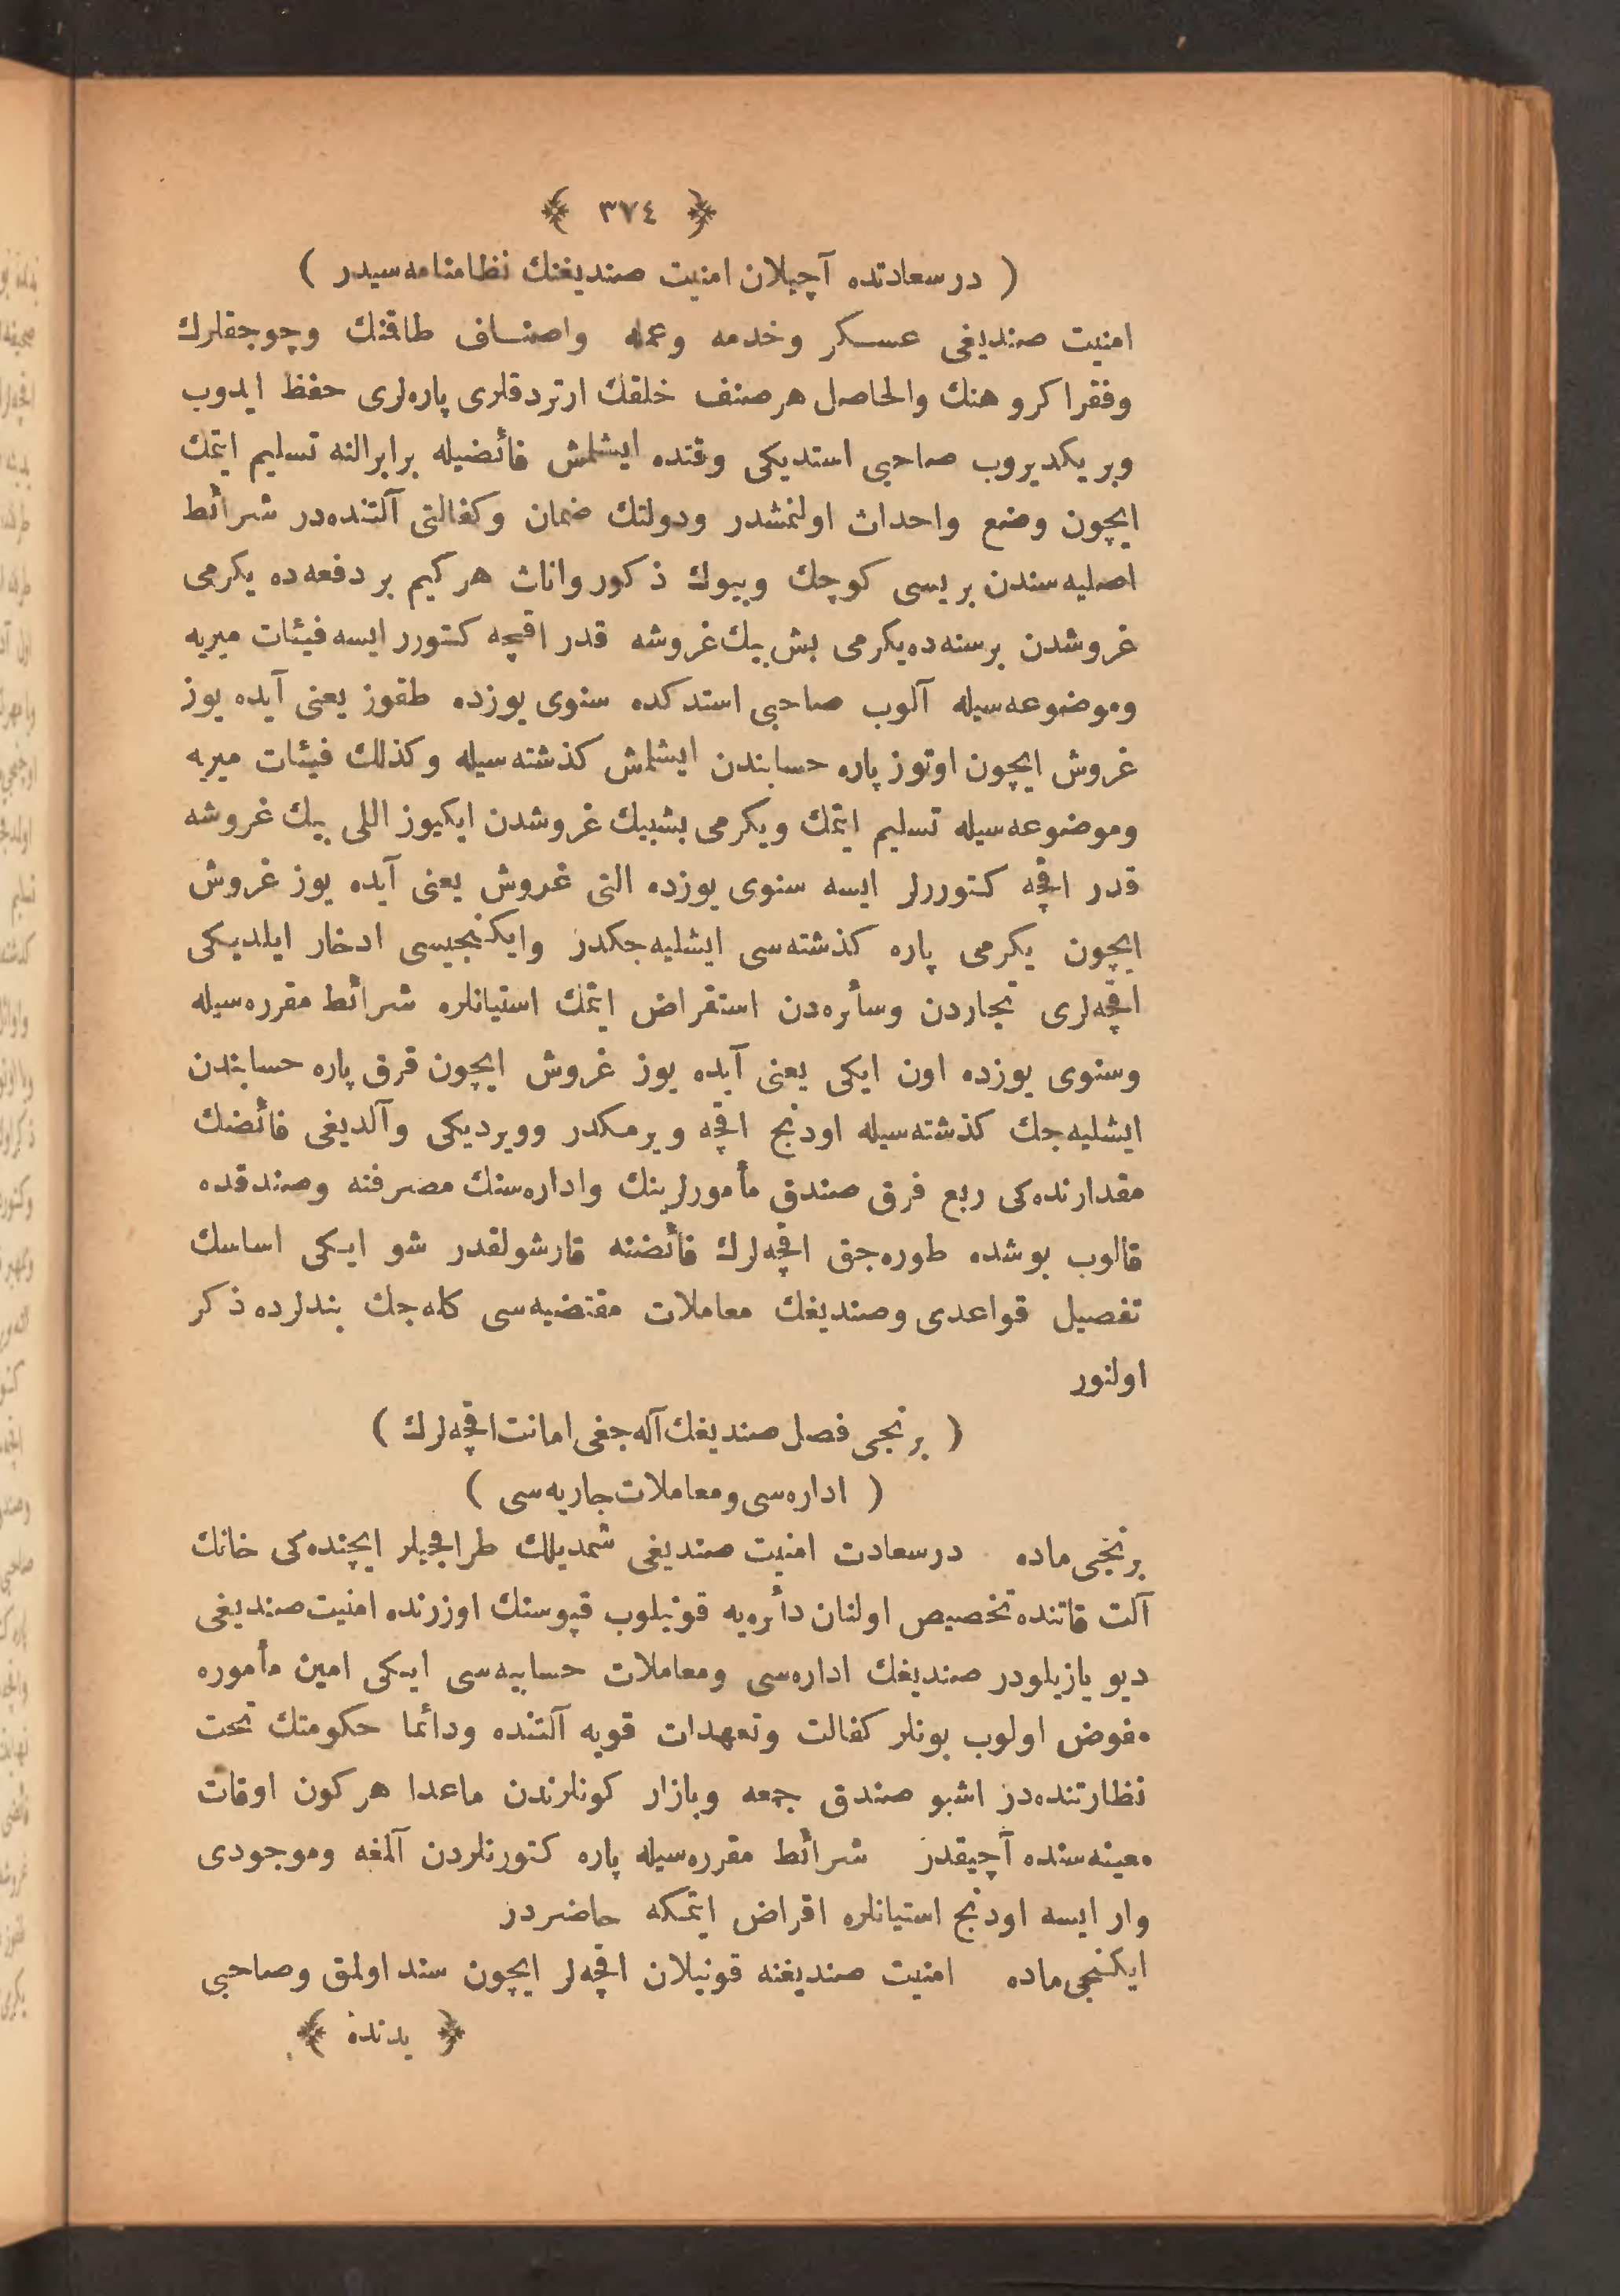 ﴿ ٣٧٤ ﴾
( در سعادتده آچیلان امنیت صندیغنك نظامنامه‌سیدر )
امنیت صندیغی عسكر وخدمه وعمله واصناف طاقنك وچوجقلرك
وفقرا كروهنك والحاصل هر صنف خلقك ارتردقلری پاره‌لری حفظ ایدوب
وبریكدیروب صاحبی استدیكی وقتده ایشلمش فائضیله برابر النه تسلیم ایتمك
ایچون وضع واحداث اولنمشدر ودولتك ضمان وكفالتی آلتنده‌در شرائط
اصلیه‌سندن بریسی كوچك وبیوك ذكور واناث هر كیم بر دفعه‌ده یكرمی
غروشدن برسنه‌ده یكرمی بش بیك غروشه قدر اقچه كتورر ایسه فیئات میریه
وموضوعه‌سیله آلوب صاحبی استدكده سنوی یوزده طقوز یعنی آیده یوز
غروش ایچون اوتوز پاره حسابندن ایشلمش كذشته‌سیله وكذلك فیئات میریه
وموضوعه‌سیله تسلیم ایتمك ویكرمی بشبیك غروشدن ایكیوز اللی بیك غروشه
قدر اقچه كتوررلر ایسه سنوی یوزده التی غروش یعنی آیده یوز غروش
ایچون یكرمی پاره كذشته‌سی ایشلیه‌جكدر وایكنجیسی ادخار ایلدیكی
اقچه‌لری تجاردن وسائره‌دن استقراض ایتمك استیانلره شرائط مقرره‌سیله
وسنوی یوزده اون ایكی یعنی آیده یوز غروش ایچون قرق پاره حسابندن
ایشلیه‌جك كذشته‌سیله اودنج اقچه ویرمكدر وویردیكی وآلدیغی فائضك
مقدارنده‌كی ربع فرق صندق مأمورلرینك واداره‌سنك مصرفنه وصندقده
قالوب بوشده طوره‌جق اقچه‌لرك فائضنه قارشولقدر شو ایكی اساسك
تفصیل قواعدی وصندیغك معاملات مقتضیه‌سی كله‌جك بندلرده ذكر
اولنور
( برنجی فصل صندیغك آله‌جغی امانت اقچه‌لرك )
( اداره‌سی ومعاملات جاریه‌سی )
برنجی ماده در سعادت امنیت صندیغی شمدیلك طراقجیلر ایچنده‌كی خانك
آلت قاتنده تخصیص اولنان دائره‌یه قونیلوب قپوسنك اوزرنده امنیت صندیغی
دیو یازیلودر صندیغك اداره‌سی ومعاملات حسابیه‌سی ایكی امین مأموره
مفوض اولوب بونلر كفالت وتعهدات قویه آلتنده ودائما حكومتك تحت
نظارتنده‌در اشبو صندق جمعه وبازار كونلرندن ماعدا هر كون اوقات
معینه‌سنده آچیقدر شرائط مقرره‌سیله پاره كتورنلردن آلمغه وموجودی
وار ایسه اودنج استیانلره اقراض ایتمكه حاضردر
ایكنجی ماده امنیت صندیغنه قونیلان اقچه‌لر ایچون سند اولمق وصاحبی
﴿ یدنده ﴾